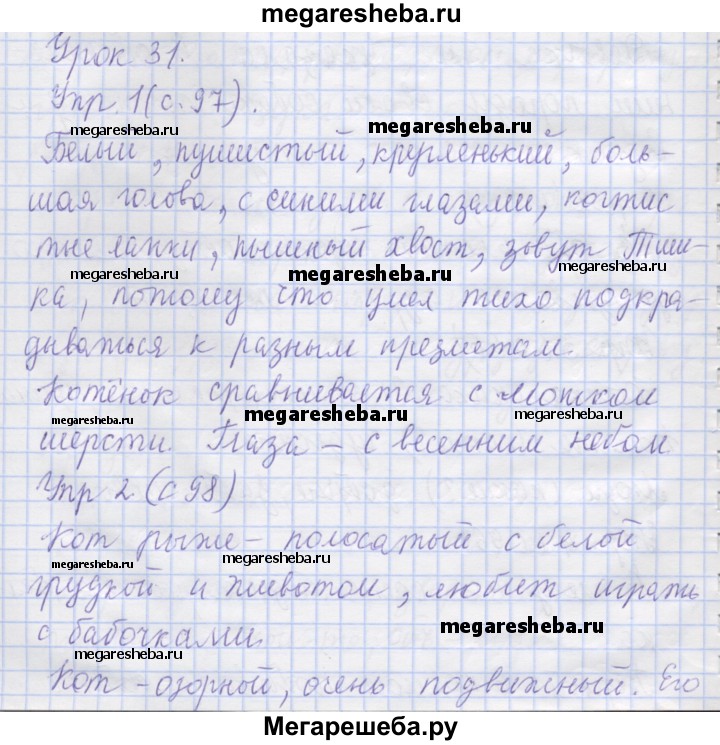 megaresheba.ru
Урок 31.
Упр. 1(с. 97).
megaresheba.ru
megaresheba.ru
Белый, пушистый, кругленький, боль-
шая голова, с синими глазами, когтис
тые лапки, пышный хвост, зовут Тиш-
megaresheba.ru
megaresheba.ru
megaresheba.ru
ка, потому что умел тихо подкра-
дываться к разным предметам.
Котёнок сравнивается с мотком
megaresheba.ru
megaresheba.ru
megaresheba.ru
шерсти. Глаза – с весенним небом
Упр 2 (с 98)
Кот рыже-полосатый с белой
megaresheba.ru
megaresheba.ru
грудкой и животом, любит играть
с бабочками.
megaresheba.ru
megaresheba.ru
Кот - озорной, очень подвижный. Его
Мегарешеба.ру